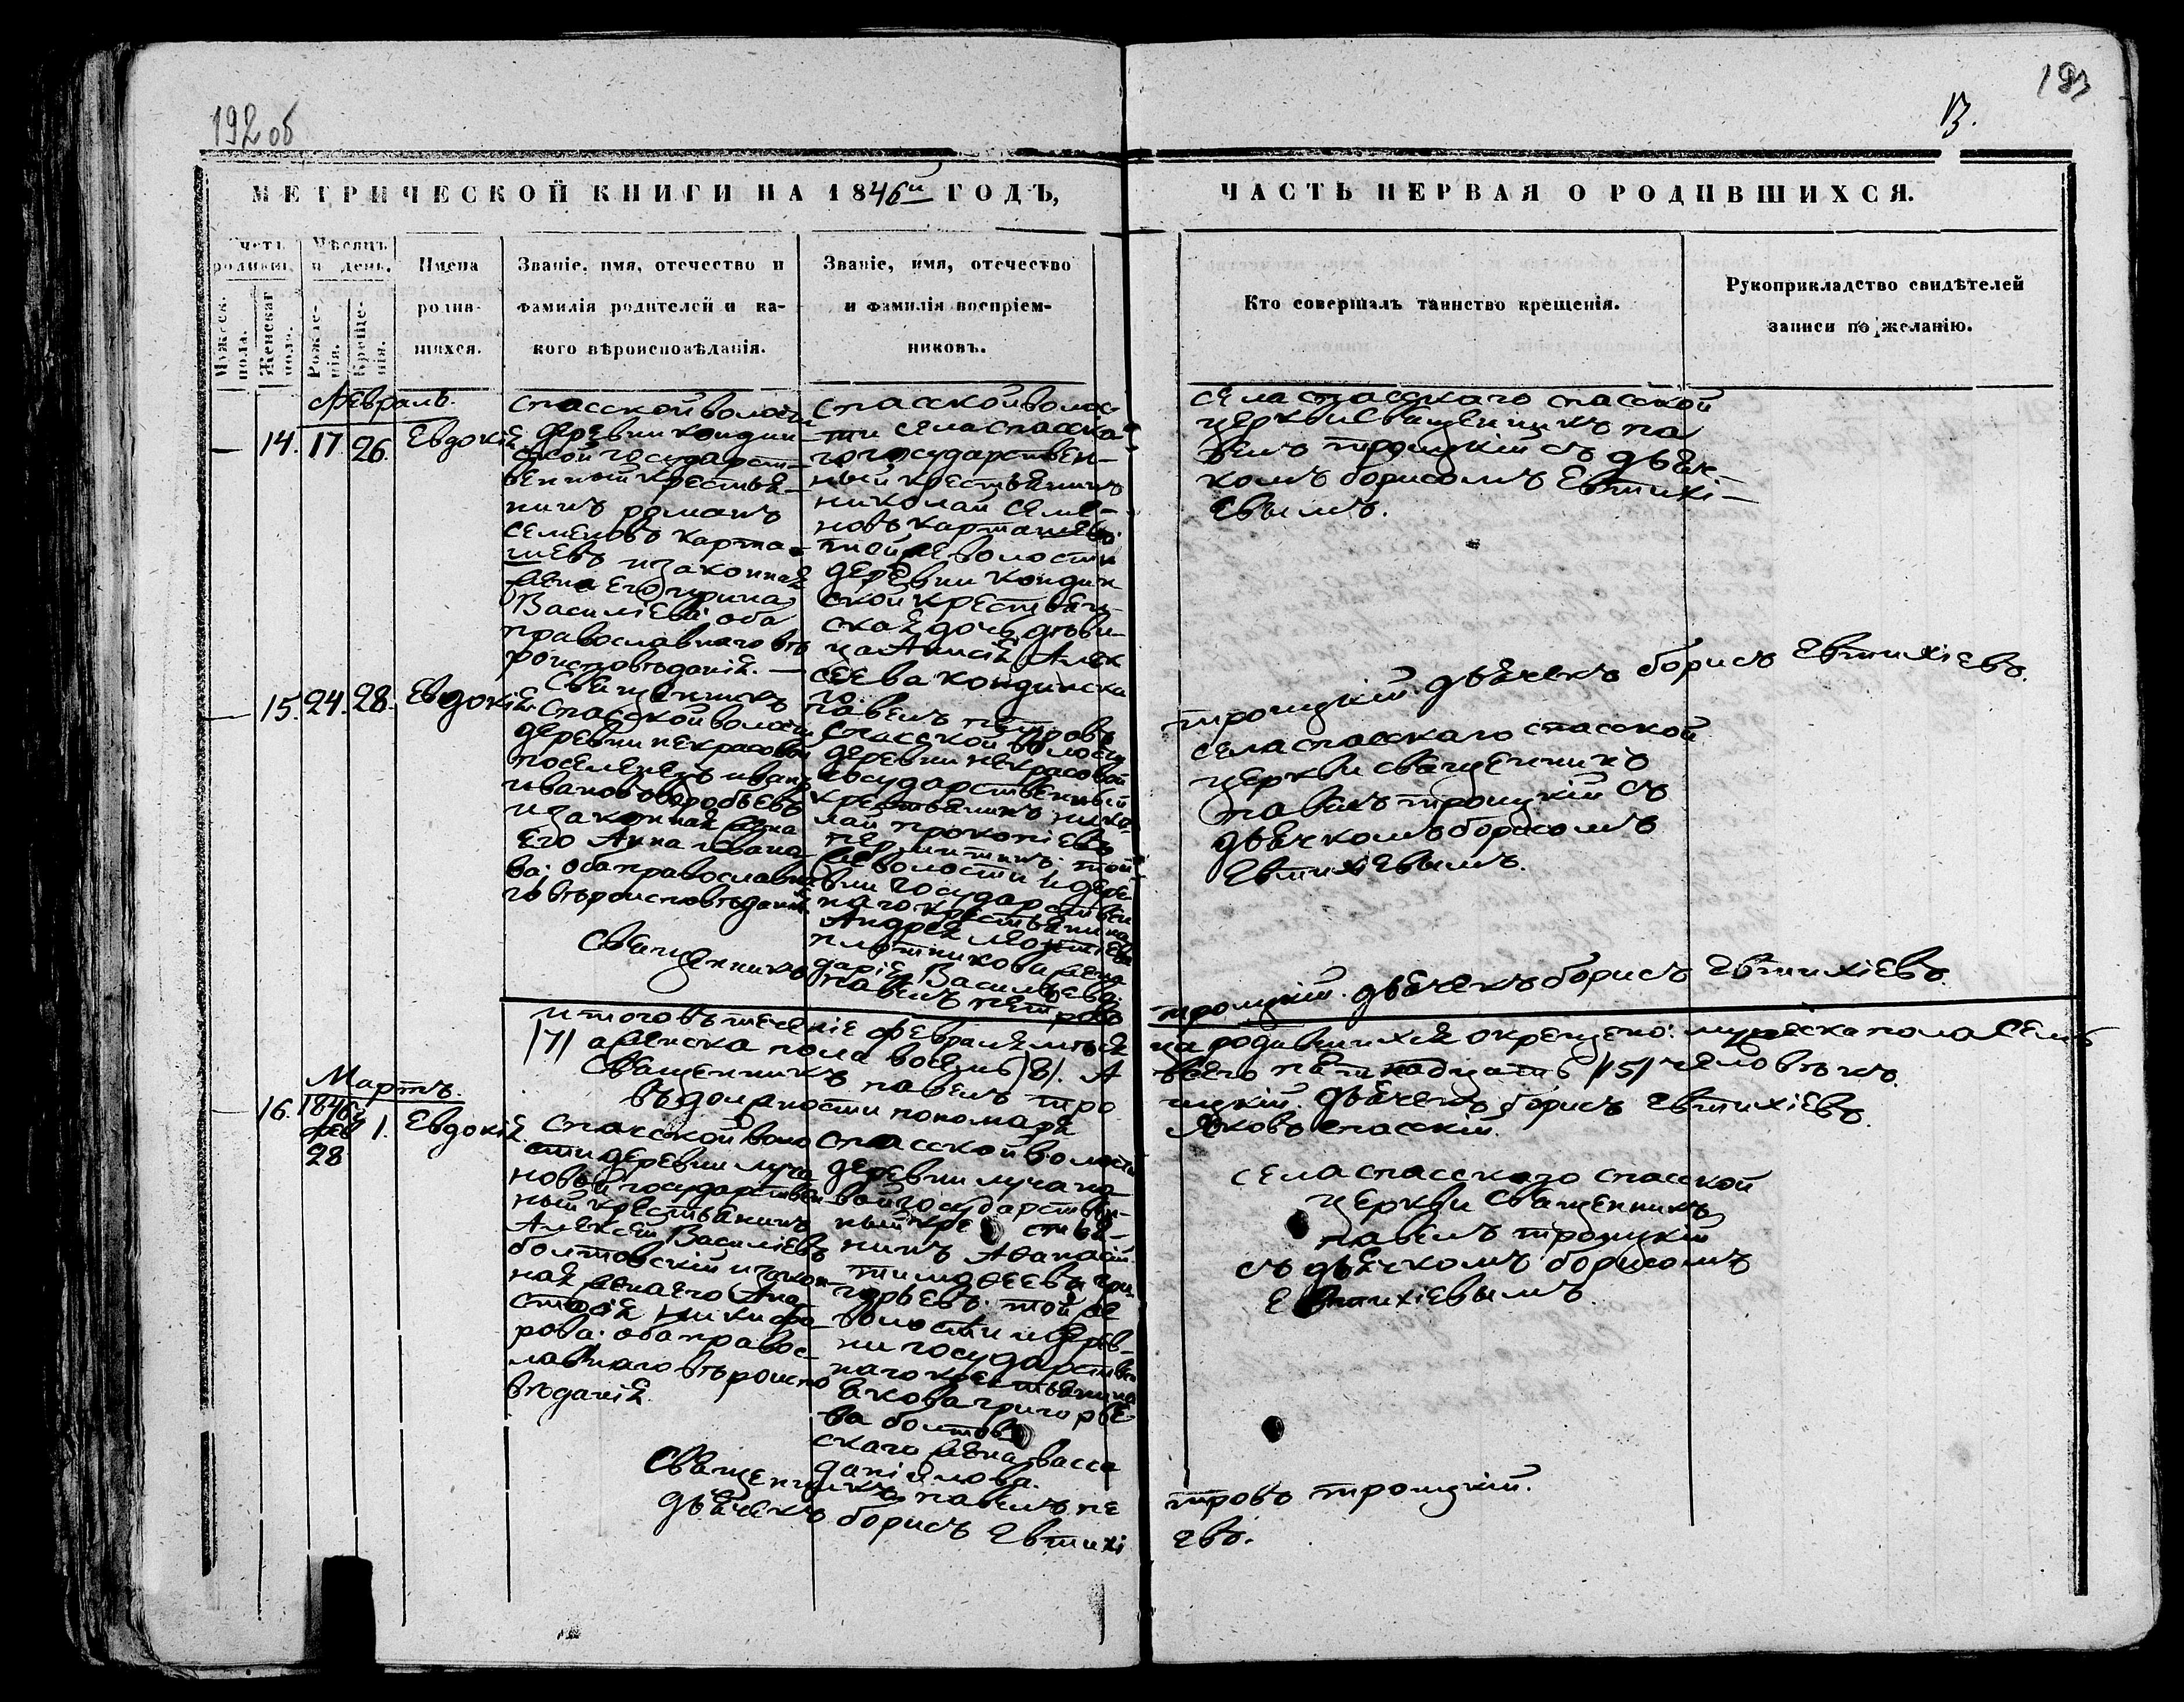 192 об
193
13.
МЕТРИЧЕСКОЙ КНИГИ НА 1846й ГОДЪ,
ЧАСТЬ ПЕРВАЯ О РОДИВШИХСЯ.
Счетъ родивш.
Мужеска пола.
Женска пола.
Мѣсяцъ и день.
Рожденія.
Крещенія.
Имена
родив-
шихся.
Званіе, имя, отечество и
фамилія родителей и ка-
кого вѣроисповѣданія.
Званіе, имя, отечество
и фамилія воспріем-
никовъ.
Кто совершалъ таинство крещенія.
Рукоприкладство свидѣтелей
записи по желанію.
Февраль.
14. 17. 26. Евдокія
Спасской волости
деревни кондин-
ской государст-
венный крестья-
нинъ романъ
семеновъ карта-
шевъ и законная
жена его ирина
Василіева; оба
православнаго вѣ
роисповѣданія.
Спасской волос-
ти села спасска
го государствен-
ный крестьянинъ
николай семе-
новъ карташевъ;
той же волости
деревни кондин
ской крестьян-
ская дочь дѣви-
ца Анисія Алек
сеева кондинска
го.
села спасскаго спасской
церкви священникъ па
велъ троицкій съ дьяч-
комъ борисомъ Евтихі-
евымъ.
Священникъ павелъ петровъ
троицкій. дьячекъ борисъ Евтихіевъ.
15. 24. 28. Евдокія
Спасской волости
деревни некрасовой
поселенецъ иванъ
ивановъ воробьевъ
и законная жена
его Анна ивано
ва; оба православна
го вѣроисповѣданія.
Спасской волости
деревни некрасовой
государственный
крестьянинъ нико-
лай прокопіевъ
той
же волости и дере-
вни государствен
наго крестьянина
Андрея леонтіева
плотникова жена
дарія Васильева.
села спасскаго спасской
церкви священникъ
павелъ троицкій съ
дьячкомъ борисомъ
Евтихіевымъ.
Священникъ павелъ петровъ
троицкій. дьячекъ борисъ Евтихіевъ.
итого въ теченіе февраля мѣся
ца родившихся окрещено: мужеска пола семь
/7/ а женска пола восемь /8/. А
всего пятнадцать /15/ человѣкъ.
Священникъ павелъ тро
ицкій. дьячекъ борисъ Евтихіевъ.
въ должности пономаря
Яковъ спасскій.
Мартъ.
16. 1846 фев 28 1. Евдокія
Спасской воло
сти деревни луча
новой государствен
ный крестьянинъ
Алексѣй Василіевъ
болтовскій и закон-
ная жена его Ана
стасія никифо-
рова; оба правос-
лавнаго вѣроиспо
вѣданія.
Спасской волости
деревни лучано
вой государствен-
ный кре стья-
нинъ Аѳанасій
тимоѳеевъ гри-
горьевъ; той же
волости и дерев-
ни государствен
наго крестьянина
якова григорье
ва болтов
скаго жена васса
даніилова.
села спасскаго спасской
церкви священникъ
павелъ троицкій
съ дьячкомъ борисомъ
Евтихіевымъ.
Священникъ павелъ пе
тровъ троицкій.
дьячекъ борисъ Евтихі
евъ.